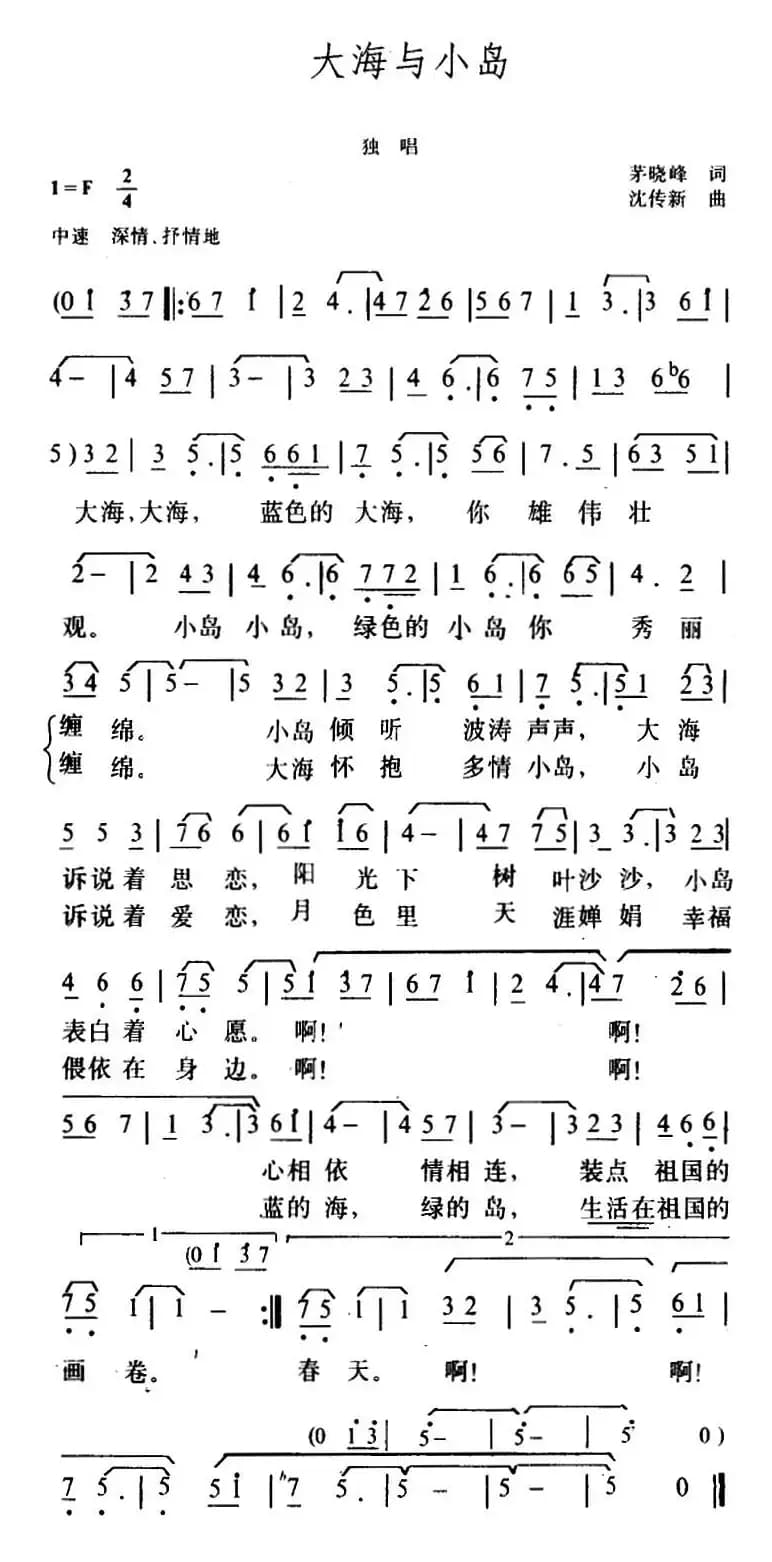 大海与小岛
独唱
1=F 2/4
茅晓峰 词
沈传新 曲
中速 深情、抒情地
(0 1 3 7 ‖: 6 7 1 | 2 4. | 4 7 2 6 | 5 6 7 | 1 3. | 3 6 1 |
4 - | 4 5 7 | 3 - | 3 2 3 | 4 6. | 6 7 5 | 1 3 6 b6 |
5) 3 2 | 3 5. | 5 6 6 1 | 7 5. | 5 5 6 | 7. 5 | 6 3 5 1 |
大海,大海, 蓝色的 大海, 你 雄 伟 壮
2 - | 2 4 3 | 4 6. | 6 7 7 2 | 1 6. | 6 6 5 | 4. 2 |
观。 小岛 小岛, 绿色的 小岛你 秀丽
3 4 5 | 5 - | 5 3 2 | 3 5. | 5 6 1 | 7 5. | 5 1 2 3 |
缠 绵。 小岛 倾 听 波涛 声声, 大 海
缠 绵。 大海 怀 抱 多情 小岛, 小 岛
5 5 3 | 7 6 6 | 6 1 1 6 | 4 - | 4 7 7 5 | 3 3. | 3 2 3 |
诉说着 思 恋, 阳 光下 树 叶沙 沙, 小岛
诉说着 爱 恋, 月 色里 天 涯婵 娟 幸福
4 6 6 | 7 5 5 | 5 1 3 7 | 6 7 1 | 2 4. | 4 7 2 6 |
表白着 心 愿。 啊! 啊!
偎依在 身 边。 啊! 啊!
5 6 7 | 1 3. | 3 6 1 | 4 - | 4 5 7 | 3 - | 3 2 3 | 4 6 6 |
心相依 情相连, 装点 祖国的
蓝的海, 绿的岛, 生活在祖国的
1 (0 1 3 7 2
7 5 1 | 1 - :‖ 7 5 1 | 1 3 2 | 3 5. | 5 6 1 |
画 卷。 春 天。 啊! 啊!
(0 1 3 | 5 - | 5 - | 5 0)
7 5. | 5 5 1 | 7 5. | 5 - | 5 - | 5 0 ‖